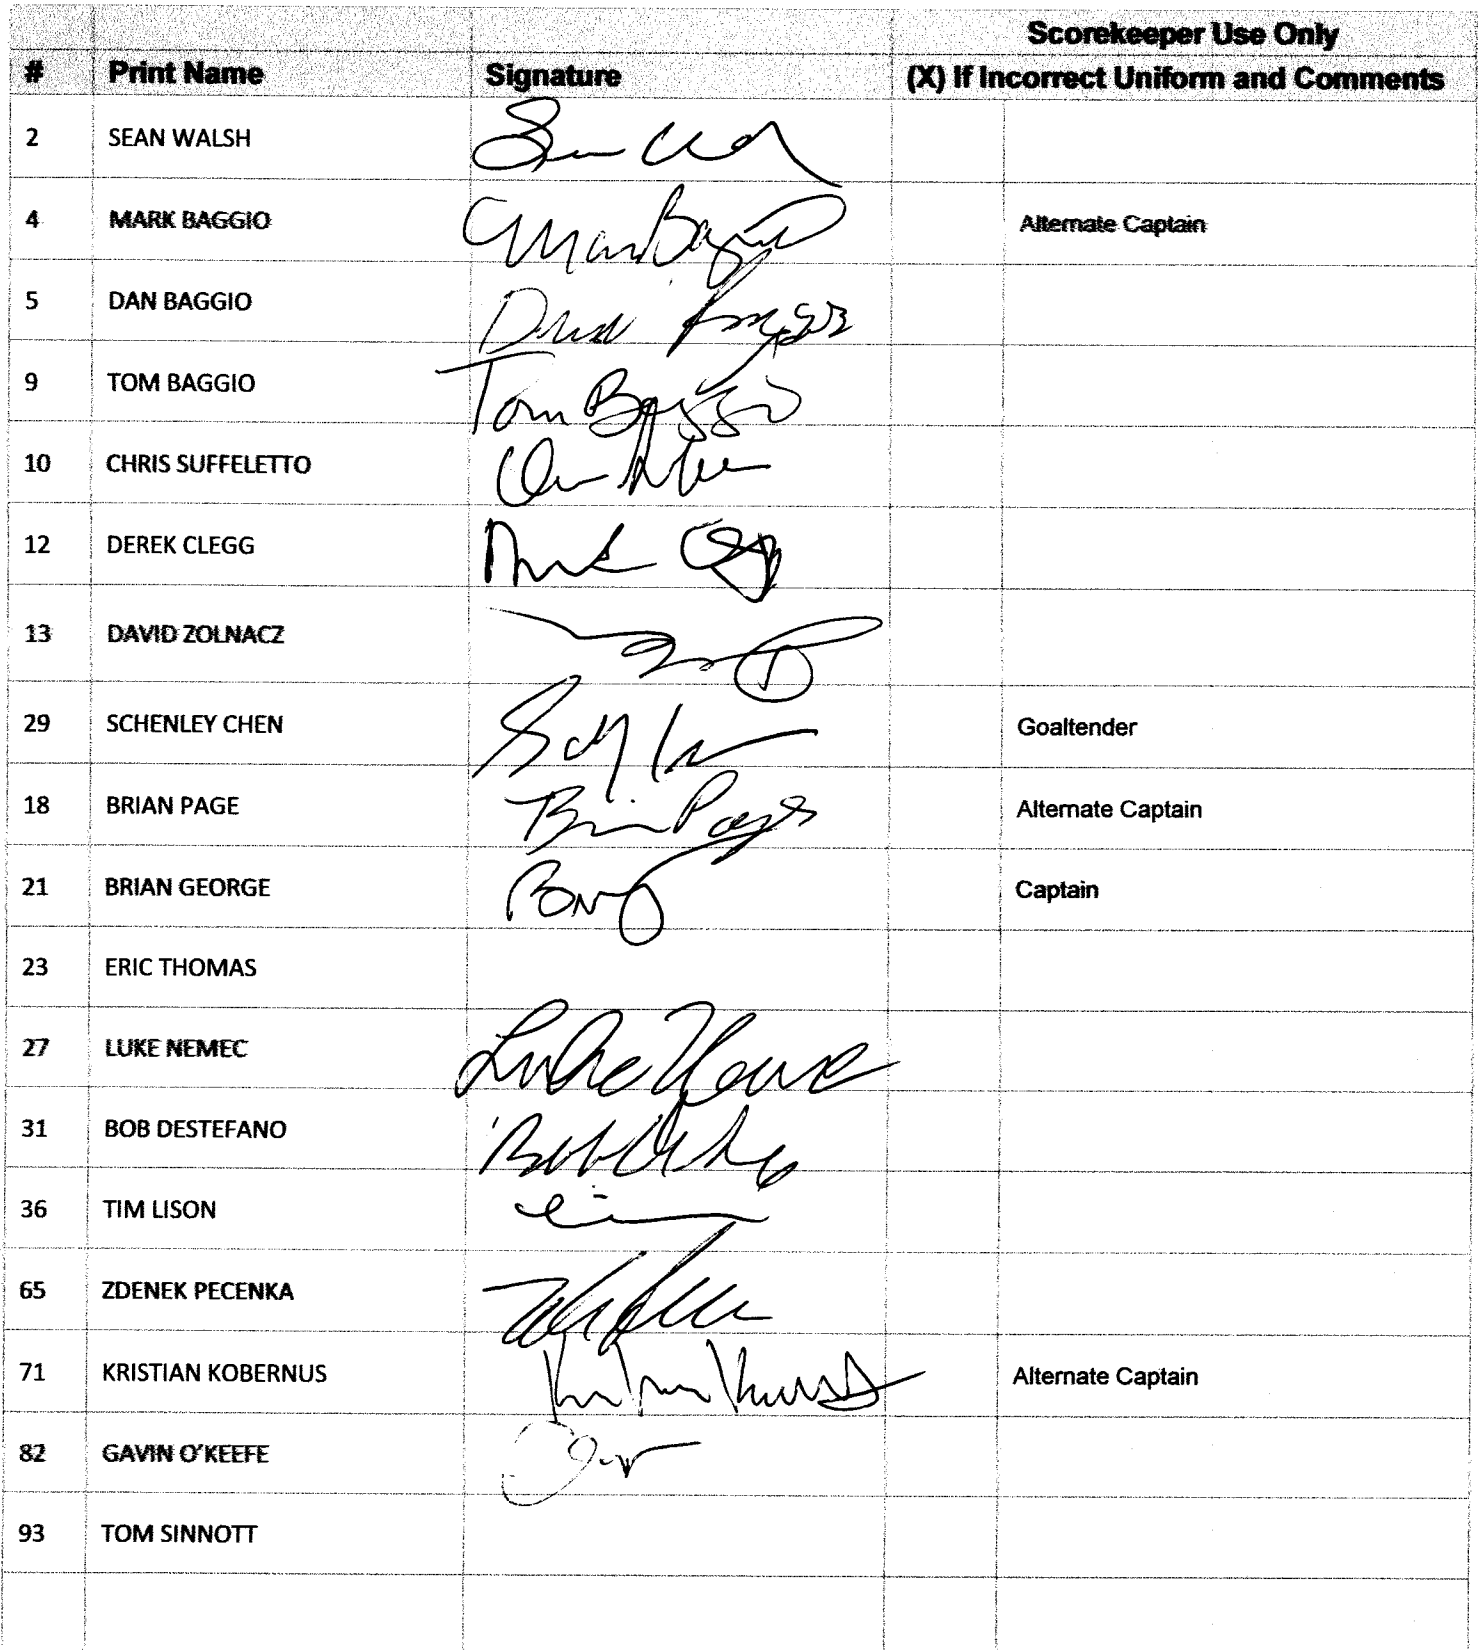 Scorekeeper Use Only
# Print Name Signature (X) If Incorrect Uniform and Comments
2 SEAN WALSH
4 MARK BAGGIO Mark Baggio Alternate Captain
5 DAN BAGGIO
9 TOM BAGGIO Tom Baggio
10 CHRIS SUFFELETTO
12 DEREK CLEGG
13 DAVID ZOLNACZ
29 SCHENLEY CHEN Goaltender
18 BRIAN PAGE Brian Page Alternate Captain
21 BRIAN GEORGE Captain
23 ERIC THOMAS
27 LUKE NEMEC Luke Nemec
31 BOB DESTEFANO
36 TIM LISON
65 ZDENEK PECENKA
71 KRISTIAN KOBERNUS Alternate Captain
82 GAVIN O'KEEFE
93 TOM SINNOTT